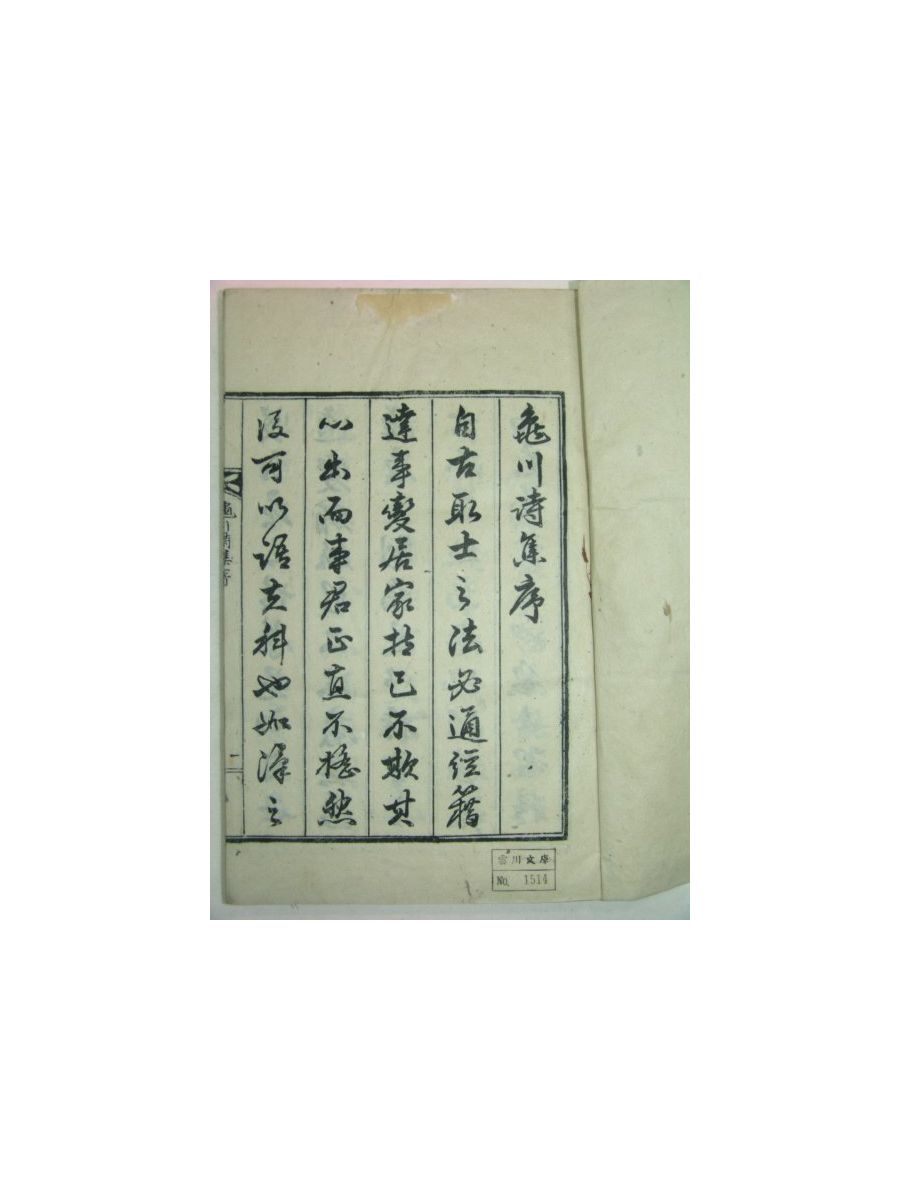 龜川詩集序
自古取士之法必通經籍
達事變居家持己不欺其
心出而事君正直不橈然
後可以語其科也如漢之
龜川詩集序
一
雲川文庫
No. 1514